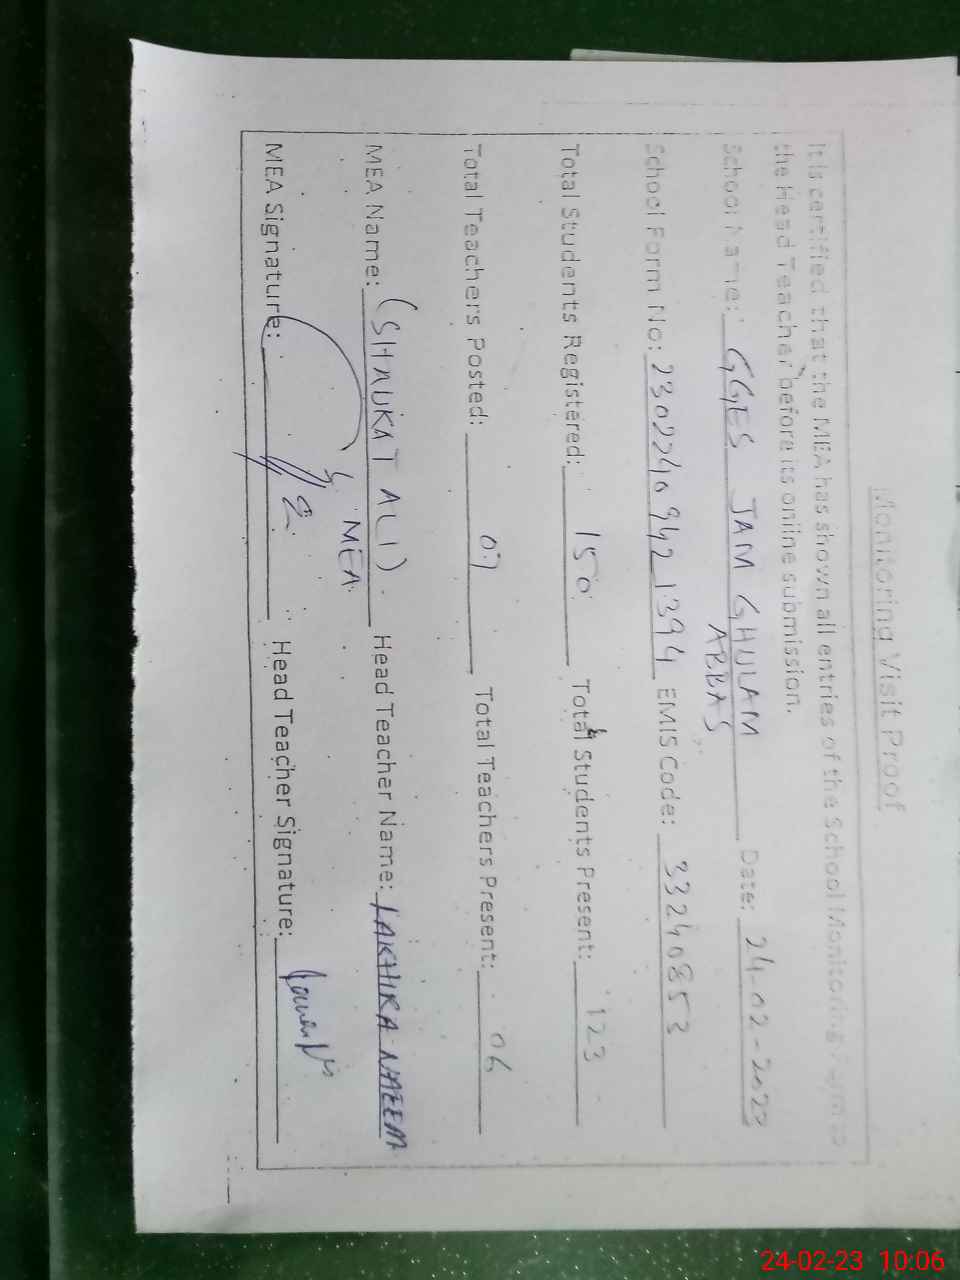 Monitoring Visit Proof
It is certified that the MEA has shown all entries of the School Monitoring Form to
the Head Teacher before its online submission.
School Name: GGES JAM GHULAM ABBAS Date: 24-02-2023
School Form No: 23022409421394 EMIS Code: 33240853
Total Students Registered: 150 Total Students Present: 123
Total Teachers Posted: 07 Total Teachers Present: 06
MEA Name: (SHAUKAT ALI) Head Teacher Name: NAEEM
MEA
MEA Signature: Head Teacher Signature:
24-02-23 10:06